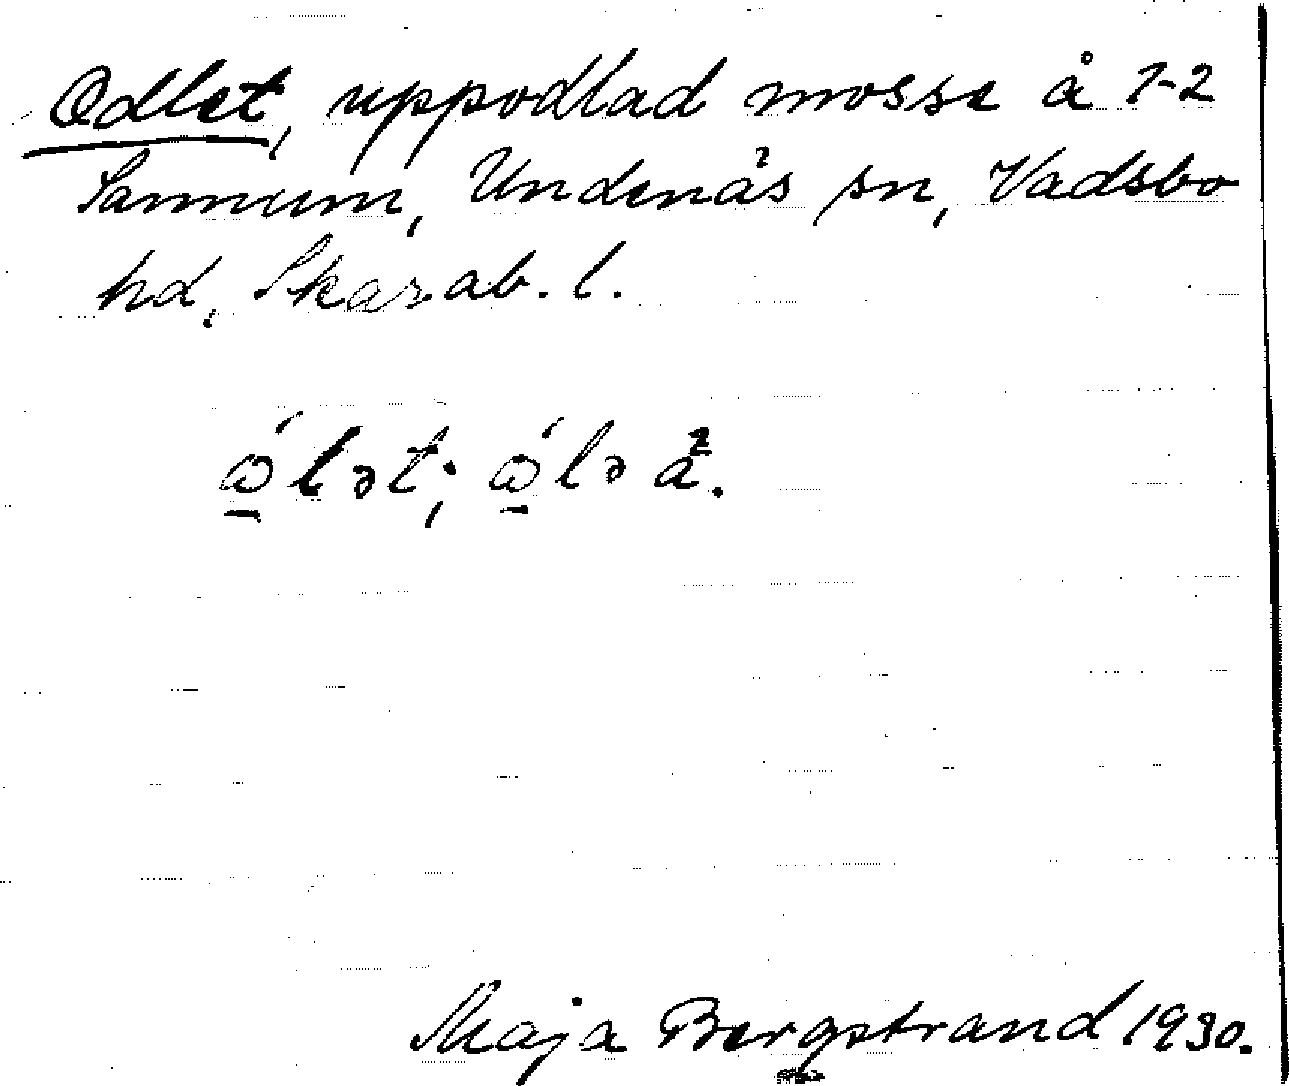 Odlet, uppodlad mosse å 1-2
Sannum, Undenäs sn, Vadsbo
hd, Skarab. l.
ώ̱lət; ώ̱lə
Maja Bergstrand 1930.